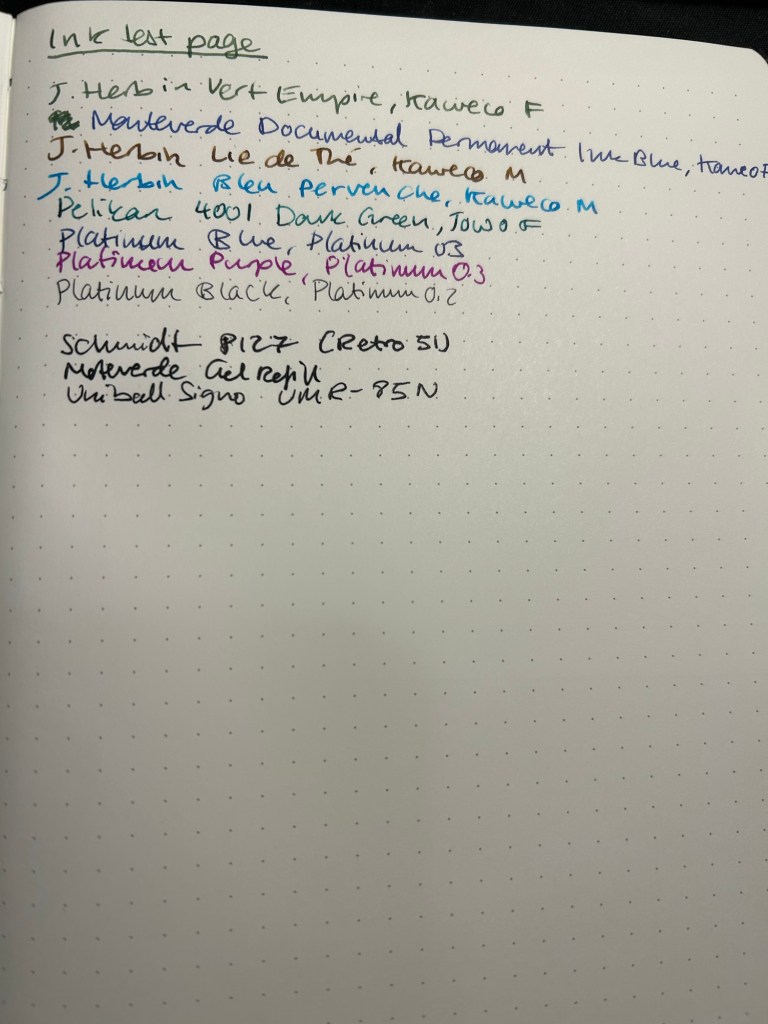 Ink test page
J. Herbin Vert Empire, Kaweco F
Monteverde Documental Permanent Ink Blue, Kaweco F
J. Herbin Lie de Thé, Kaweco M
J. Herbin Bleu Pervenche, Kaweco M
Pelikan 4001 Dark Green, Jowo F
Platinum Blue, Platinum 03
Platinum Purple, Platinum 0.3
Platinum Black, Platinum 0.2
Schmidt P127 (Retro 51)
Moteverde Gel Refill
Uniball Signo UMR-85N